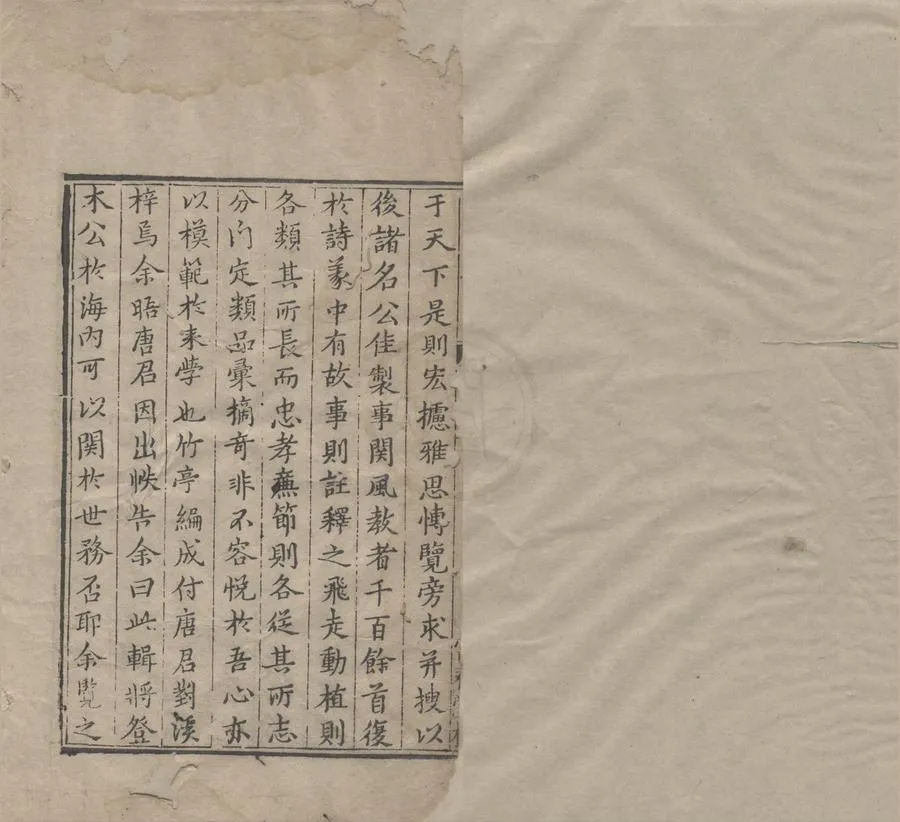 于天下是則宏攄雅思博覽旁求并搜以
後諸名公佳製事関風教者千百餘首復
於詩義中有故事則註釋之飛走動植則
各類其所長而忠孝亷節則各從其所志
分门定類品彙摘竒非不容悦於吾心亦
以模範於来學也竹亭編成付唐君對溪
梓焉余晤唐君因出帙告余曰此輯將登
木公於海内可以関於世務否耶余覽之